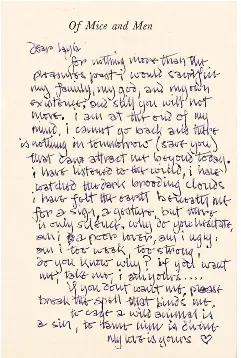 Of Mice and Men
dear layla
for nothing more than the
pleasures past i would sacrifice
my family, my god, and my own
existence, and still you will not
move. i am at the end of my
mind, i cannot go back and there
is nothing in tomorrow (save you)
that can attract me beyond today.
i have listened to the wind, i have
watched the dark brooding clouds
i have felt the earth beneath me
for a sign, a gesture, but there
is only silence. why do you hesitate,
am i a poor lover, am i ugly.
am i too weak, too strong,
do you know why? if you want
me, take me, i am yours....
if you dont want me, please
break the spell that binds me.
to cage a wild animal is
a sin, to tame him is divine
my love is yours ♡